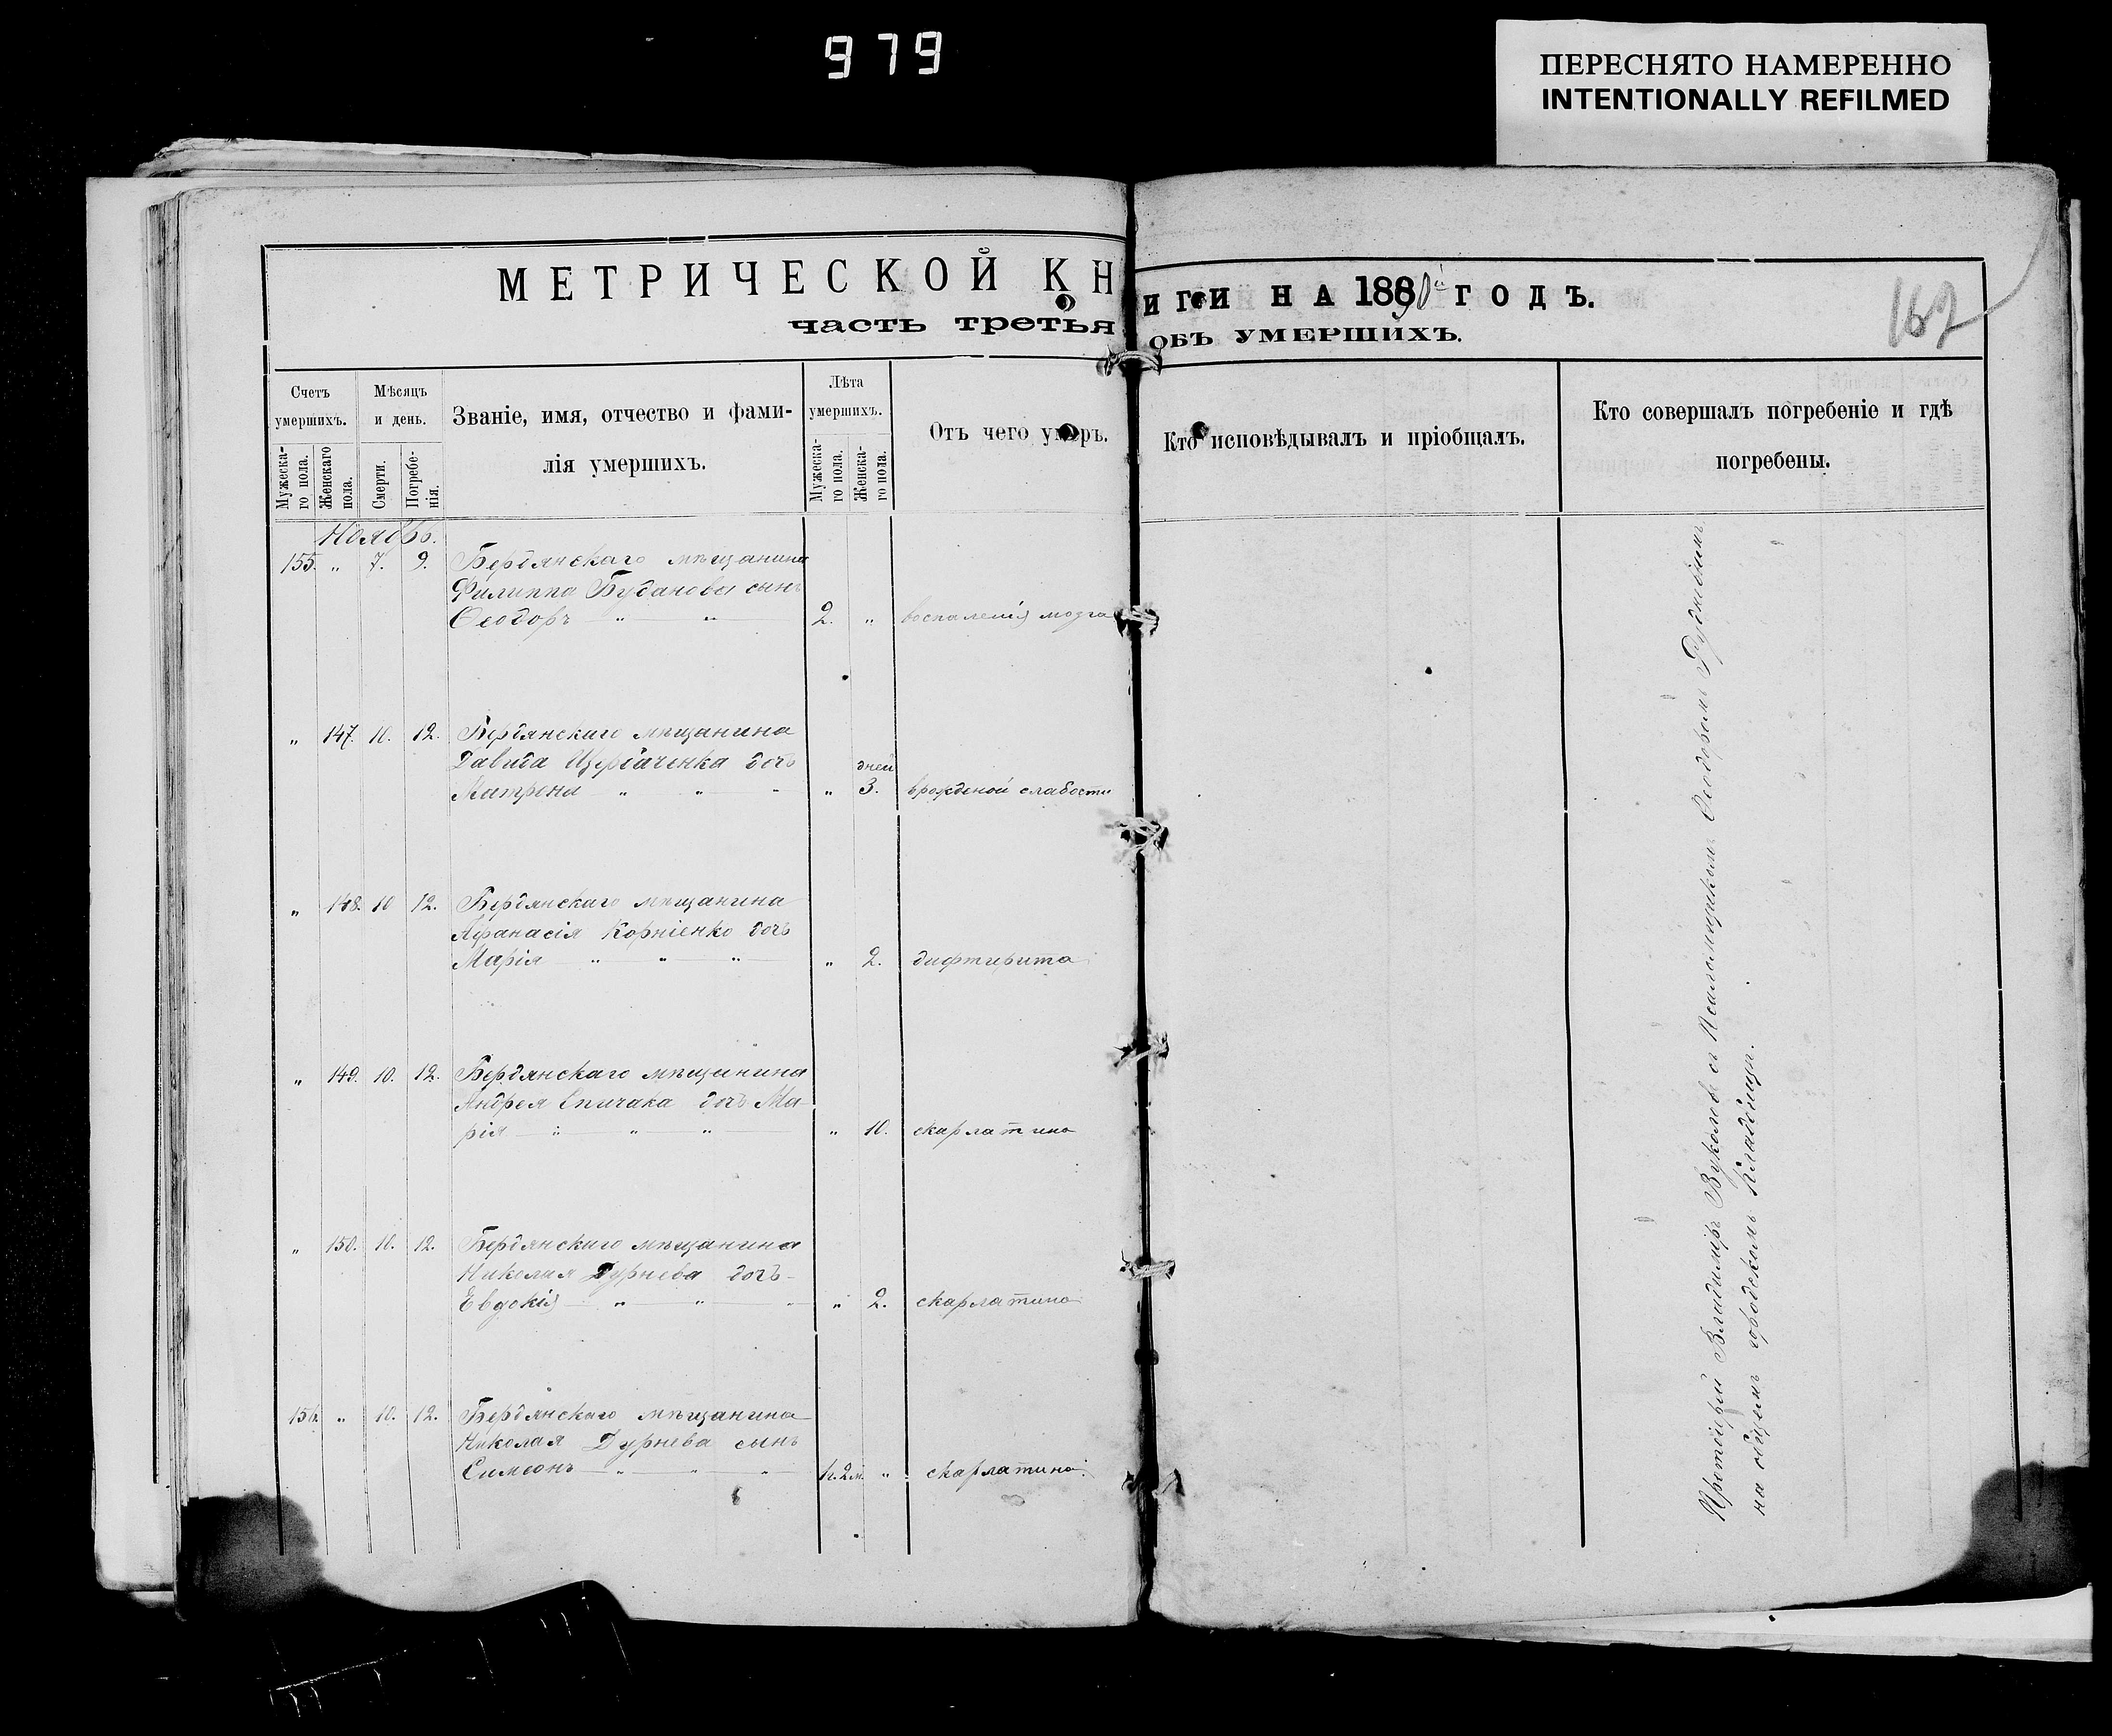 979
ПЕРЕСНЯТО НАМЕРЕННО
INTENTIONALLY REFILMED
МЕТРИЧЕСКОЙ КНИГИ НА 1890й ГОДЪ.
ЧАСТЬ ТРЕТЬЯ ОБЪ УМЕРШИХЪ.
Счетъ умершихъ.
Мужеска-го пола.
Женскаго пола.
Мѣсяцъ и день.
Смерти.
Погребе-нія.
Званіе, имя, отчество и фами-
лія умершихъ.
Лѣта умершихъ.
Мужеска-го пола.
Женска-го пола.
Отъ чего умеръ.
Кто исповѣдывалъ и пріобщалъ.
Кто совершалъ погребеніе и гдѣ
погребены.
Ноябрь.
155. " 7. 9. Бердянскаго мѣщанина
Филиппа Буданова сынъ
Ѳеодоръ " " 2. " воспаленія мозга
" 147. 10. 12. Бердянскаго мѣщанина
Давида дочь
дней
Матрона " " " " 3. врожденой слабости
" 148. 10 12. Бердянскаго мѣщанина
Афанасія Корніенко дочь
Марія " " " " 2. дифтирита
" 149. 10. 12. Бердянскаго мѣщанина
Андрея Спичака дочь Ма-
рія " " " " 10. скарлатина
" 150. 10. 12. Бердянскаго мѣщанина
Николая Дурнева дочь
Евдокія " " " " 2. скарлатина
156. " 10. 12. Бердянскаго мѣщанина
Николая Дурнева сынъ
Симеонъ " " " " скарлатина.
Протоіерей Владиміръ Вуколовъ съ Псаломщикомъ Ѳеодоромъ
на общемъ городскомъ кладбищѣ.